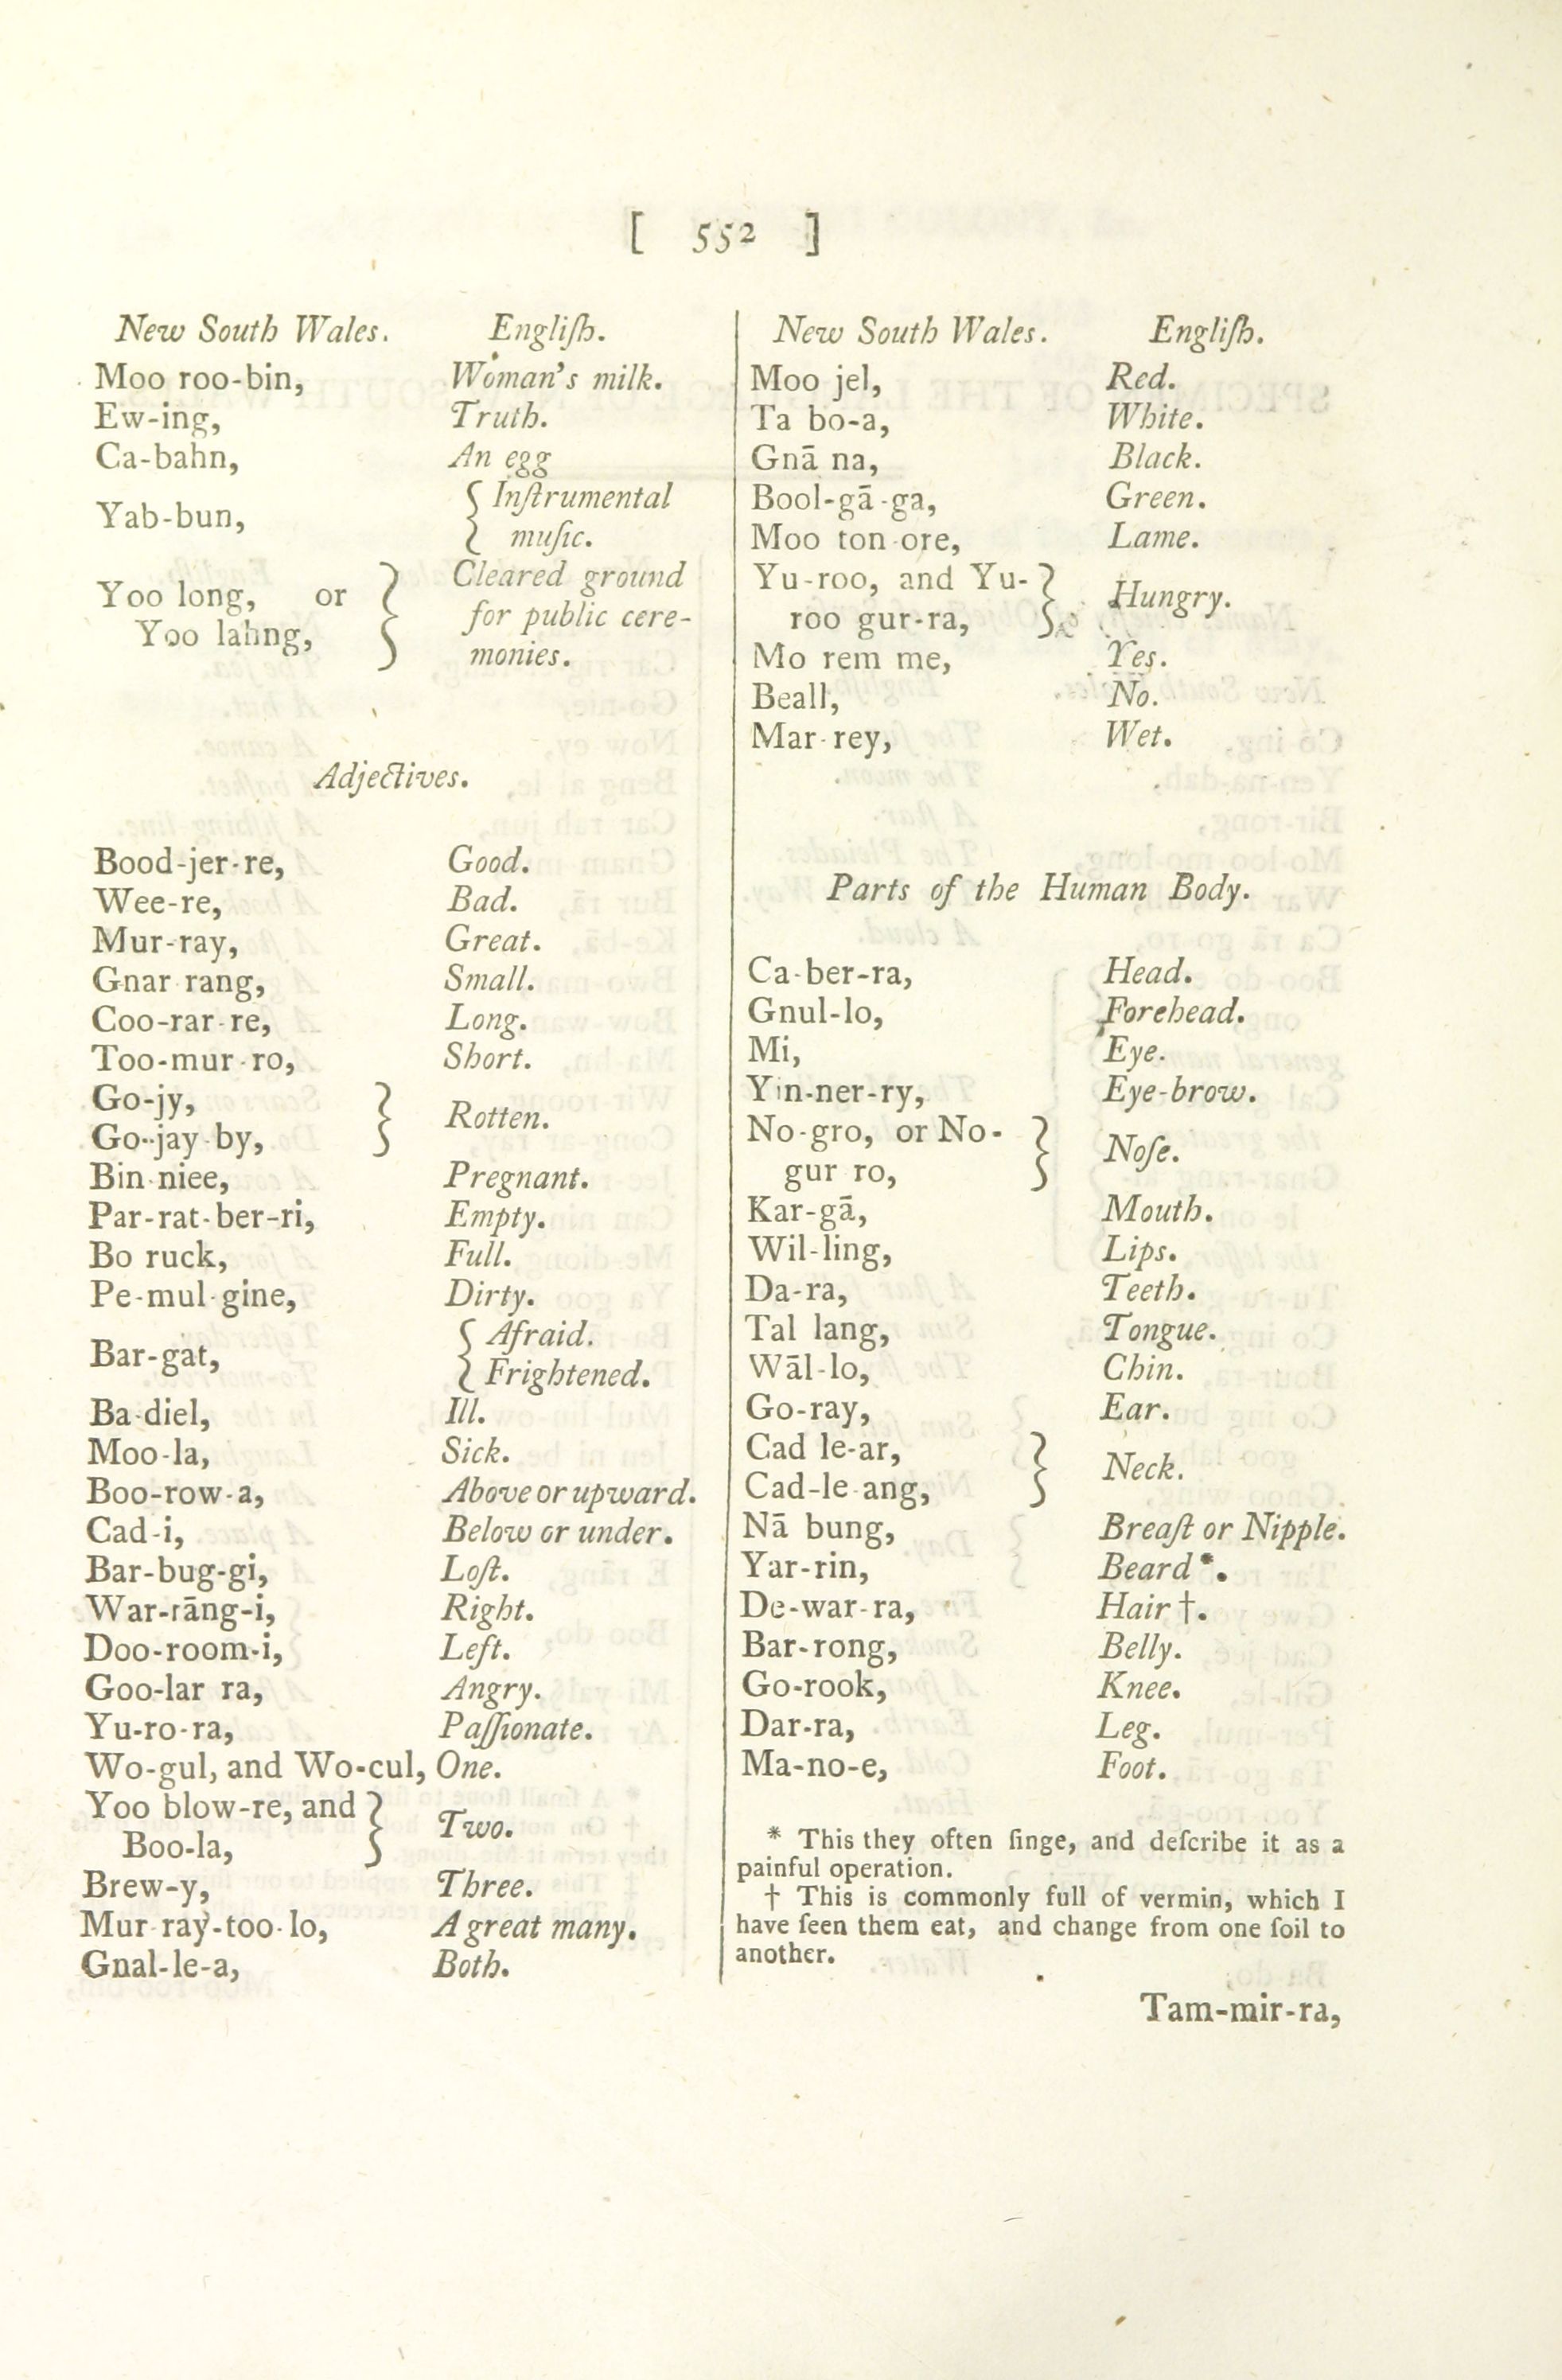 [ 552 ]
New South Wales. Engliſh.
Moo roo-bin, Woman's milk.
Ew-ing, Truth.
Ca-bahn, An egg
Yab-bun, { Inſtrumental
muſic.
Yoo long, or } Cleared ground
Yoo lahng, for public cere-
monies.
Adjectives.
Bood-jer-re, Good.
Wee-re, Bad.
Mur-ray, Great.
Gnar rang, Small.
Coo-rar-re, Long.
Too-mur-ro, Short.
Go-jy, } Rotten.
Go-jay-by,
Bin-niee, Pregnant.
Par-rat-ber-ri, Empty.
Bo ruck, Full.
Pe-mul-gine, Dirty.
Bar-gat, { Afraid.
Frightened.
Ba-diel, Ill.
Moo-la, Sick.
Boo-row-a, Above or upward.
Cad-i, Below or under.
Bar-bug-gi, Loſt.
War-rāng-i, Right.
Doo-room-i, Left.
Goo-lar ra, Angry.
Yu-ro-ra, Paſſionate.
Wo-gul, and Wo-cul, One.
Yoo blow-re, and } Two.
Boo-la,
Brew-y, Three.
Mur ray-too-lo, A great many.
Gnal-le-a, Both.
New South Wales. Engliſh.
Moo jel, Red.
Ta bo-a, White.
Gnā na, Black.
Bool-gā-ga, Green.
Moo ton-ore, Lame.
Yu-roo, and Yu- } Hungry.
roo gur-ra,
Mo rem me, Yes.
Beall, No.
Mar-rey, Wet.
Parts of the Human Body.
Ca-ber-ra, Head.
Gnul-lo, Forehead.
Mi, Eye.
Yin-ner-ry, Eye-brow.
No-gro, or No- } Noſe.
gur ro,
Kar-gā, Mouth.
Wil-ling, Lips.
Da-ra, Teeth.
Tal lang, Tongue.
Wāl-lo, Chin.
Go-ray, Ear.
Cad le-ar, } Neck.
Cad-le-ang,
Nā bung, Breaſt or Nipple.
Yar-rin, Beard *.
De-war-ra, Hair †.
Bar-rong, Belly.
Go-rook, Knee.
Dar-ra, Leg.
Ma-no-e, Foot.
* This they often ſinge, and deſcribe it as a
painful operation.
† This is commonly full of vermin, which I
have ſeen them eat, and change from one ſoil to
another.
Tam-mir-ra,